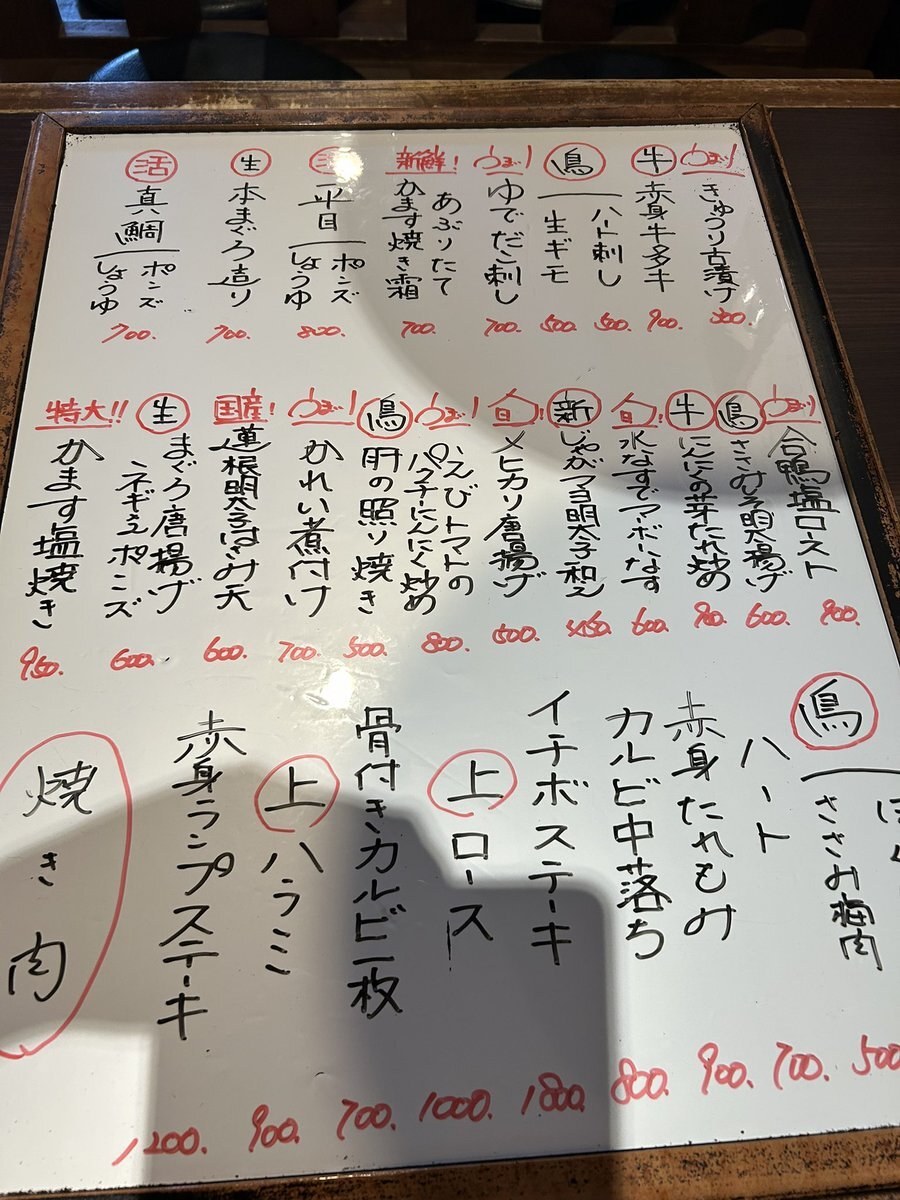 うまい!
きゅうり古漬け
300.
牛
赤身牛タタキ
900.
鳥
ハート刺し
500.
生ギモ
500.
うまい!
ゆでだこ刺し
700.
新鮮!
あぶりたて
かます焼き霜
700.
活
平目
ポンズ
しょうゆ
800.
生
本まぐろ造り
700.
活
真鯛
ポンズ
しょうゆ
700.
うまい!
合鴨塩ロースト
鳥
600.
牛
にんにくの芽たれ炒め
900.
旬!
水なすでマーボーなす
600.
新
じゃがマヨ明太子和え
450.
旬!
メヒカリ唐揚げ
500.
うまい!
えびトマトの
パクチにんにく炒め
800.
鳥
肝の照り焼き
500.
うまい!
かれい煮付け
700.
国産!
蓮根明太子はさみ天
600.
生
まぐろ唐揚げ
ポンズ
600.
特大!!
かます塩焼き
950.
鳥
ささみ梅肉
500
ハート
700.
赤身たれもみ
900.
カルビ中落ち
800.
イチボステーキ
1800.
上ロース
1000.
骨付きカルビ一枚
700.
上ハラミ
900.
赤身ランプステーキ
1200.
焼き肉